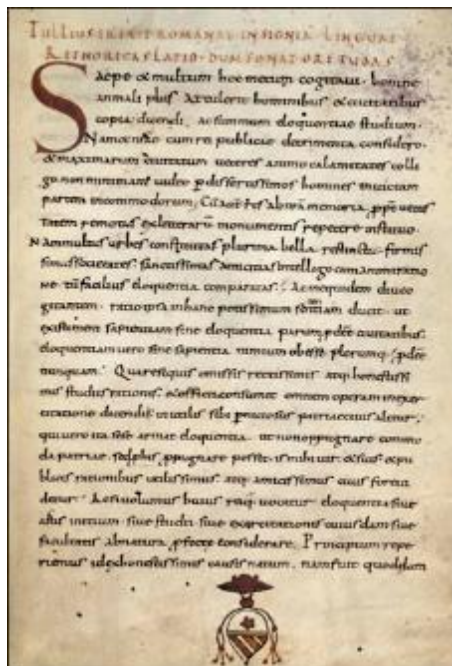 TULLIUS ERIGIT ROMANAE INSIGNIA LINGUAE
RETHORICAS LATIO DUM SONAT ORE TUBAS
Saepe & multum hoc mecum cogitaui. bonine
an mali plus attulerit hominibus & ciuitatibus
copia dicendi. ac summum eloquentiae studium.
Nam cum & rei publicae detrimenta considero.
& maximarum ciuitatum ueteres animo calamitates colli
go. non minimam uideo p disertissimos homines inuectam
partem incommodorum; Cu autē res ab nr̄a memoria ppt uetus
tatem remotas ex litterarū monumentis repetere instituo.
Nam multas urbes constitutas plurima bella restincta. firmis
simas societates. sanctissimas amicitias intellego cum animi ratio
ne tū facilius eloquentia comparatas; Ac me quidem diu co
gitantem. ratio ipsa in hanc potissimum sententiam ducit. ut
existimem sapientiam sine eloquentia parum pdesse ciuitatibus.
eloquentiam uero sine sapientia nimium obesse plerumq; pdesse
numquam; Quare si quis omissis rectissimis atq; honestissi
mis studiis rationis. & officii consumit omnem operam in exer
citatione dicendi. is inutilis sibi pniciosus patriae ciuis alitur;
qui uero ita sese armat eloquentia. ut non oppugnare commo
da patriae. sed p his ppugnare possit. is mihi uir. & suis & pu
blicis rationibus utilissimus. atq; amicissimus ciuis fore ui
detur; Ac si uolumus huius rei q uocatur eloquentia siue
artis initium. siue studii. siue exercitationis cuiusdam siue
facultatis ab natura pfectae considerare. Principium repe
riemus id ex honestissimis causis natum. nam fuit quoddam